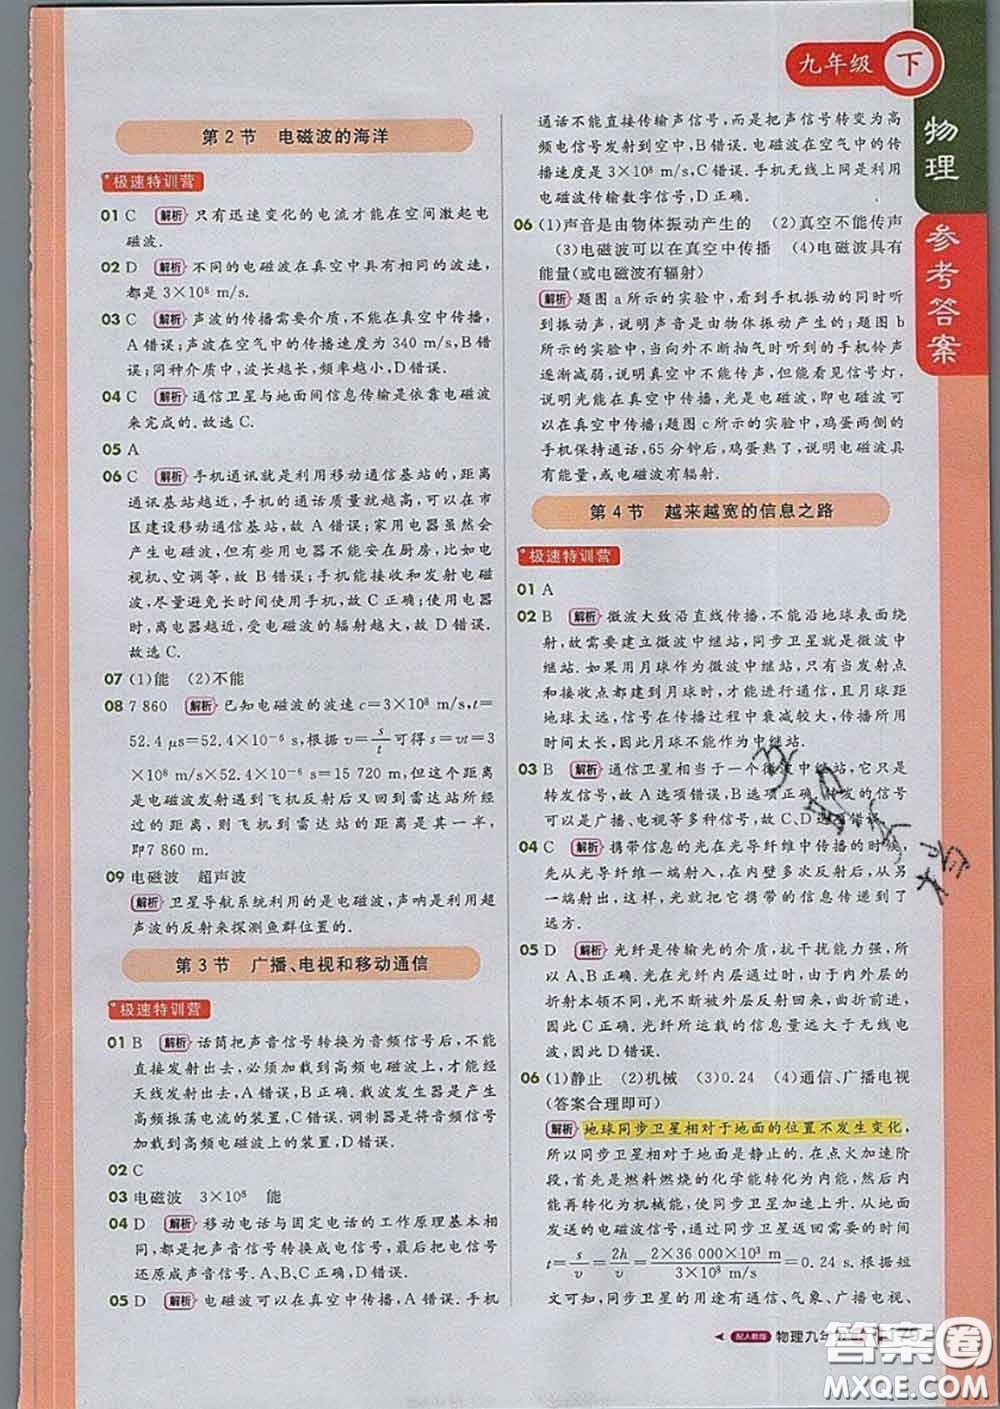 九年级 下
物理
参考答案
第2节 电磁波的海洋
极速特训营
01 C 解析 只有迅速变化的电流才能在空间激起电
磁波.
02 D 解析 不同的电磁波在真空中具有相同的波速,
都是 3×10⁸ m/s.
03 C 解析 声波的传播需要介质,不能在真空中传播,
A错误;声波在空气中的传播速度为 340 m/s,B错
误;同种介质中,波长越长,频率越小,D错误.
04 C 解析 通信卫星与地面间信息传输是依靠电磁波
来完成的.故选C.
05 A
06 C 解析 手机通讯就是利用移动通信基站的,距离
通讯基站越近,手机的通话质量就越高,可以在市
区建设移动通信基站,故A错误;家用电器虽然会
产生电磁波,但是可以将其安在厨房,比如电
视机、空调等,故B错误;手机能接收和发射电磁
波,尽量避免长时间使用手机,故C正确;使用电器
时,离电器越近,受电磁波的辐射越大,故D错误.
故选C.
07 (1)能 (2)不能
08 7 860 解析 已知电磁波的波速c=3×10⁸ m/s,t=
52.4 μs=52.4×10⁻⁶ s,根据v=s/t可得s=vt=3
×10⁸ m/s×52.4×10⁻⁶ s=15 720 m,但此距离
是电磁波发射遇到飞机反射后又回到雷达站所经
过的距离,则飞机到雷达站的距离是其一半,
即7 860 m.
09 电磁波 超声波
解析 卫星导航系统利用的是电磁波,声呐是利用超
声波的反射来探测鱼群位置的.
第3节 广播、电视和移动通信
极速特训营
01 B 解析 话筒把声音信号转换为音频信号后,不能
直接发射出去,必须加载到高频电磁波上,才能经
天线发射出去,A错误,B正确.载波发生器是产生
高频振荡电流的装置,C错误.调制器是将音频信号
加载到高频电磁波上的装置,D错误.
02 C
03 电磁波 3×10⁸ 能
04 D 解析 移动电话与固定电话的工作原理基本相
同,都是把声音信号转换成电信号,最后把电信号
还原成声音信号.A、B、C错误,D正确.
05 D 解析 电磁波可以在真空中传播,A错误.手机
通话不能直接传输声信号,而是把声信号转变为高
频电信号发射到空中,B错误.电磁波在空气中的传
播速度是 3×10⁸ m/s,C错误.手机无线上网是利用
电磁波传输数字信号,D正确.
06 (1)声音是由物体振动产生的 (2)真空不能传声
(3)电磁波可以在真空中传播 (4)电磁波具有
能量(或电磁波有辐射)
解析 题图a所示的实验中,看到手机振动的同时听
到振动声,说明声音是由物体振动产生的;题图b
所示的实验中,当向外不断抽气时听到的手机铃声
逐渐减弱,说明真空中不能传声,但能看见信号灯,
说明光能在真空中传播,光是电磁波,说明电磁波
可以在真空中传播;题图c所示的实验中,鸡蛋两侧的
手机保持通话,65分钟后,鸡蛋熟了,说明电磁波具
有能量,或电磁波有辐射.
第4节 越来越宽的信息之路
极速特训营
01 A
02 B 解析 微波大致沿直线传播,不能沿地球表面绕
射,故需要建立微波中继站,同步卫星就是微波中
继站.如果用月球作为微波中继站,当发射点
和接收点都建到月球时,才能通信,且月球距
地球太远,信号在传播过程中衰减较大,传播所用
时间太长,因此月球不能作为中继站.
03 B 解析 通信卫星相当于一个微波中继站,它只是
转发信号,故A选项错误,B选项正确.转发的信号
可以是广播、电视等多种信号,故C、D选项错误.
04 C 解析 携带信息的光在光导纤维中传播的时候,
先从光导纤维一端射入,在内壁多次反射后,从另
一端射出,这样就把它携带的信息传递到了
远方.
05 D 解析 光纤是传输光的介质,抗干扰能力强,所
以A、B正确.光在光纤内层通过时,由于内外层的
折射本领不同,光被外层反射回来,曲折前进,
因此C正确.光纤所运载的信息量远大于无线电
波,因此D错误.
06 (1)静止 (2)机械 (3)0.24 (4)通信、广播电视
(答案合理即可)
解析 地球同步卫星相对于地面的位置不发生变化,
所以同步卫星相对于地面是静止的.在点火加速升
空阶段,首先是燃料燃烧的化学能转化为内能,内
能再转化为机械能,使同步卫星加速上升.从地面
发送的电磁波信号,通过同步卫星返回需要的时间
t=s/v=2h/v=2×36 000×10³ m/3×10⁸ m/s=0.24s.根据短
文可知,同步卫星的用途有通信、气象、广播电视、
配人教版 物理九年级
答案圈
MXQE.COM